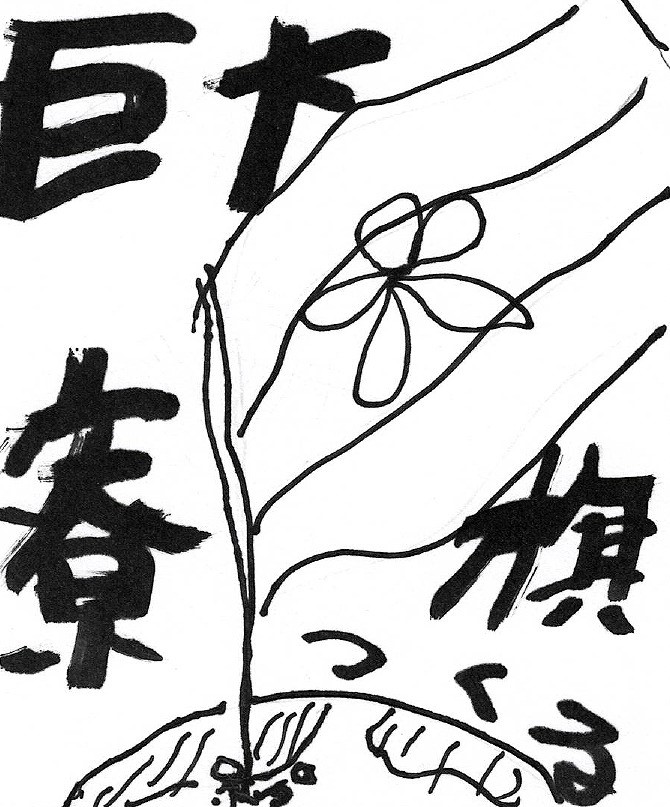 巨大
寮旗
つくる